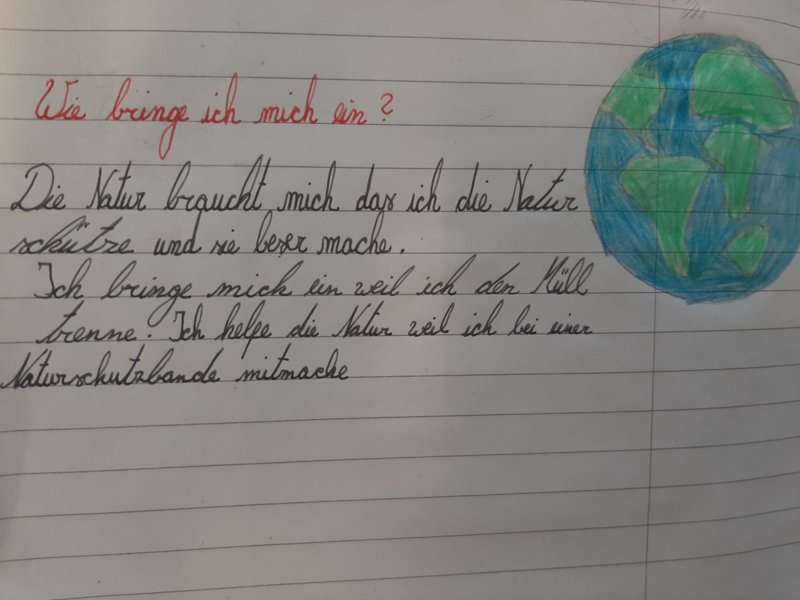 Wie bringe ich mich ein?
Die Natur braucht mich das ich die Natur
schütze und sie beser mache.
Ich bringe mich ein weil ich den Müll
trenne. Ich helfe die Natur weil ich bei einer
Naturschutzbande mitmache